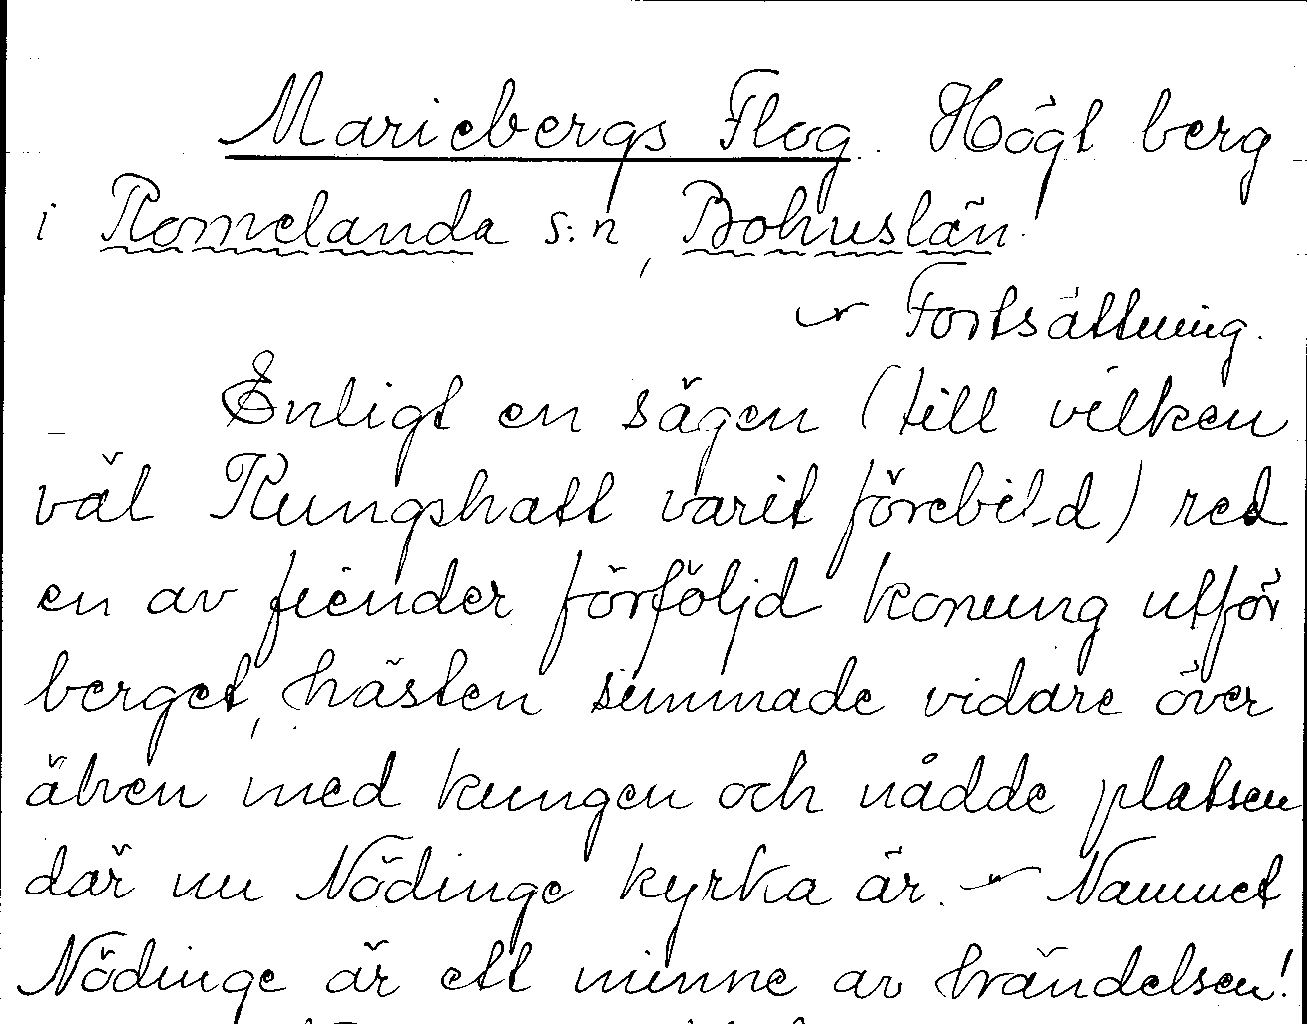 Mariebergs Flog. Högt berg
i Romelanda s:n, Bohuslän.
~ Fortsättning.
Enligt en sägen (till vilken
väl Kungshatt varit förebild) red
en av fiender förföljd konung utför
berget, hästen simmade vidare över
älven med kungen och nådde platsen
där nu Nödinge kyrka är. ~ Namnet
Nödinge är ett minne av händelsen!